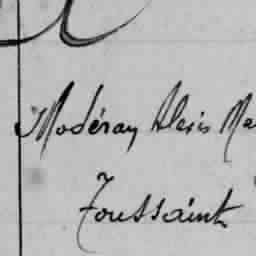 Modéran Alexis Ma
Toussaint